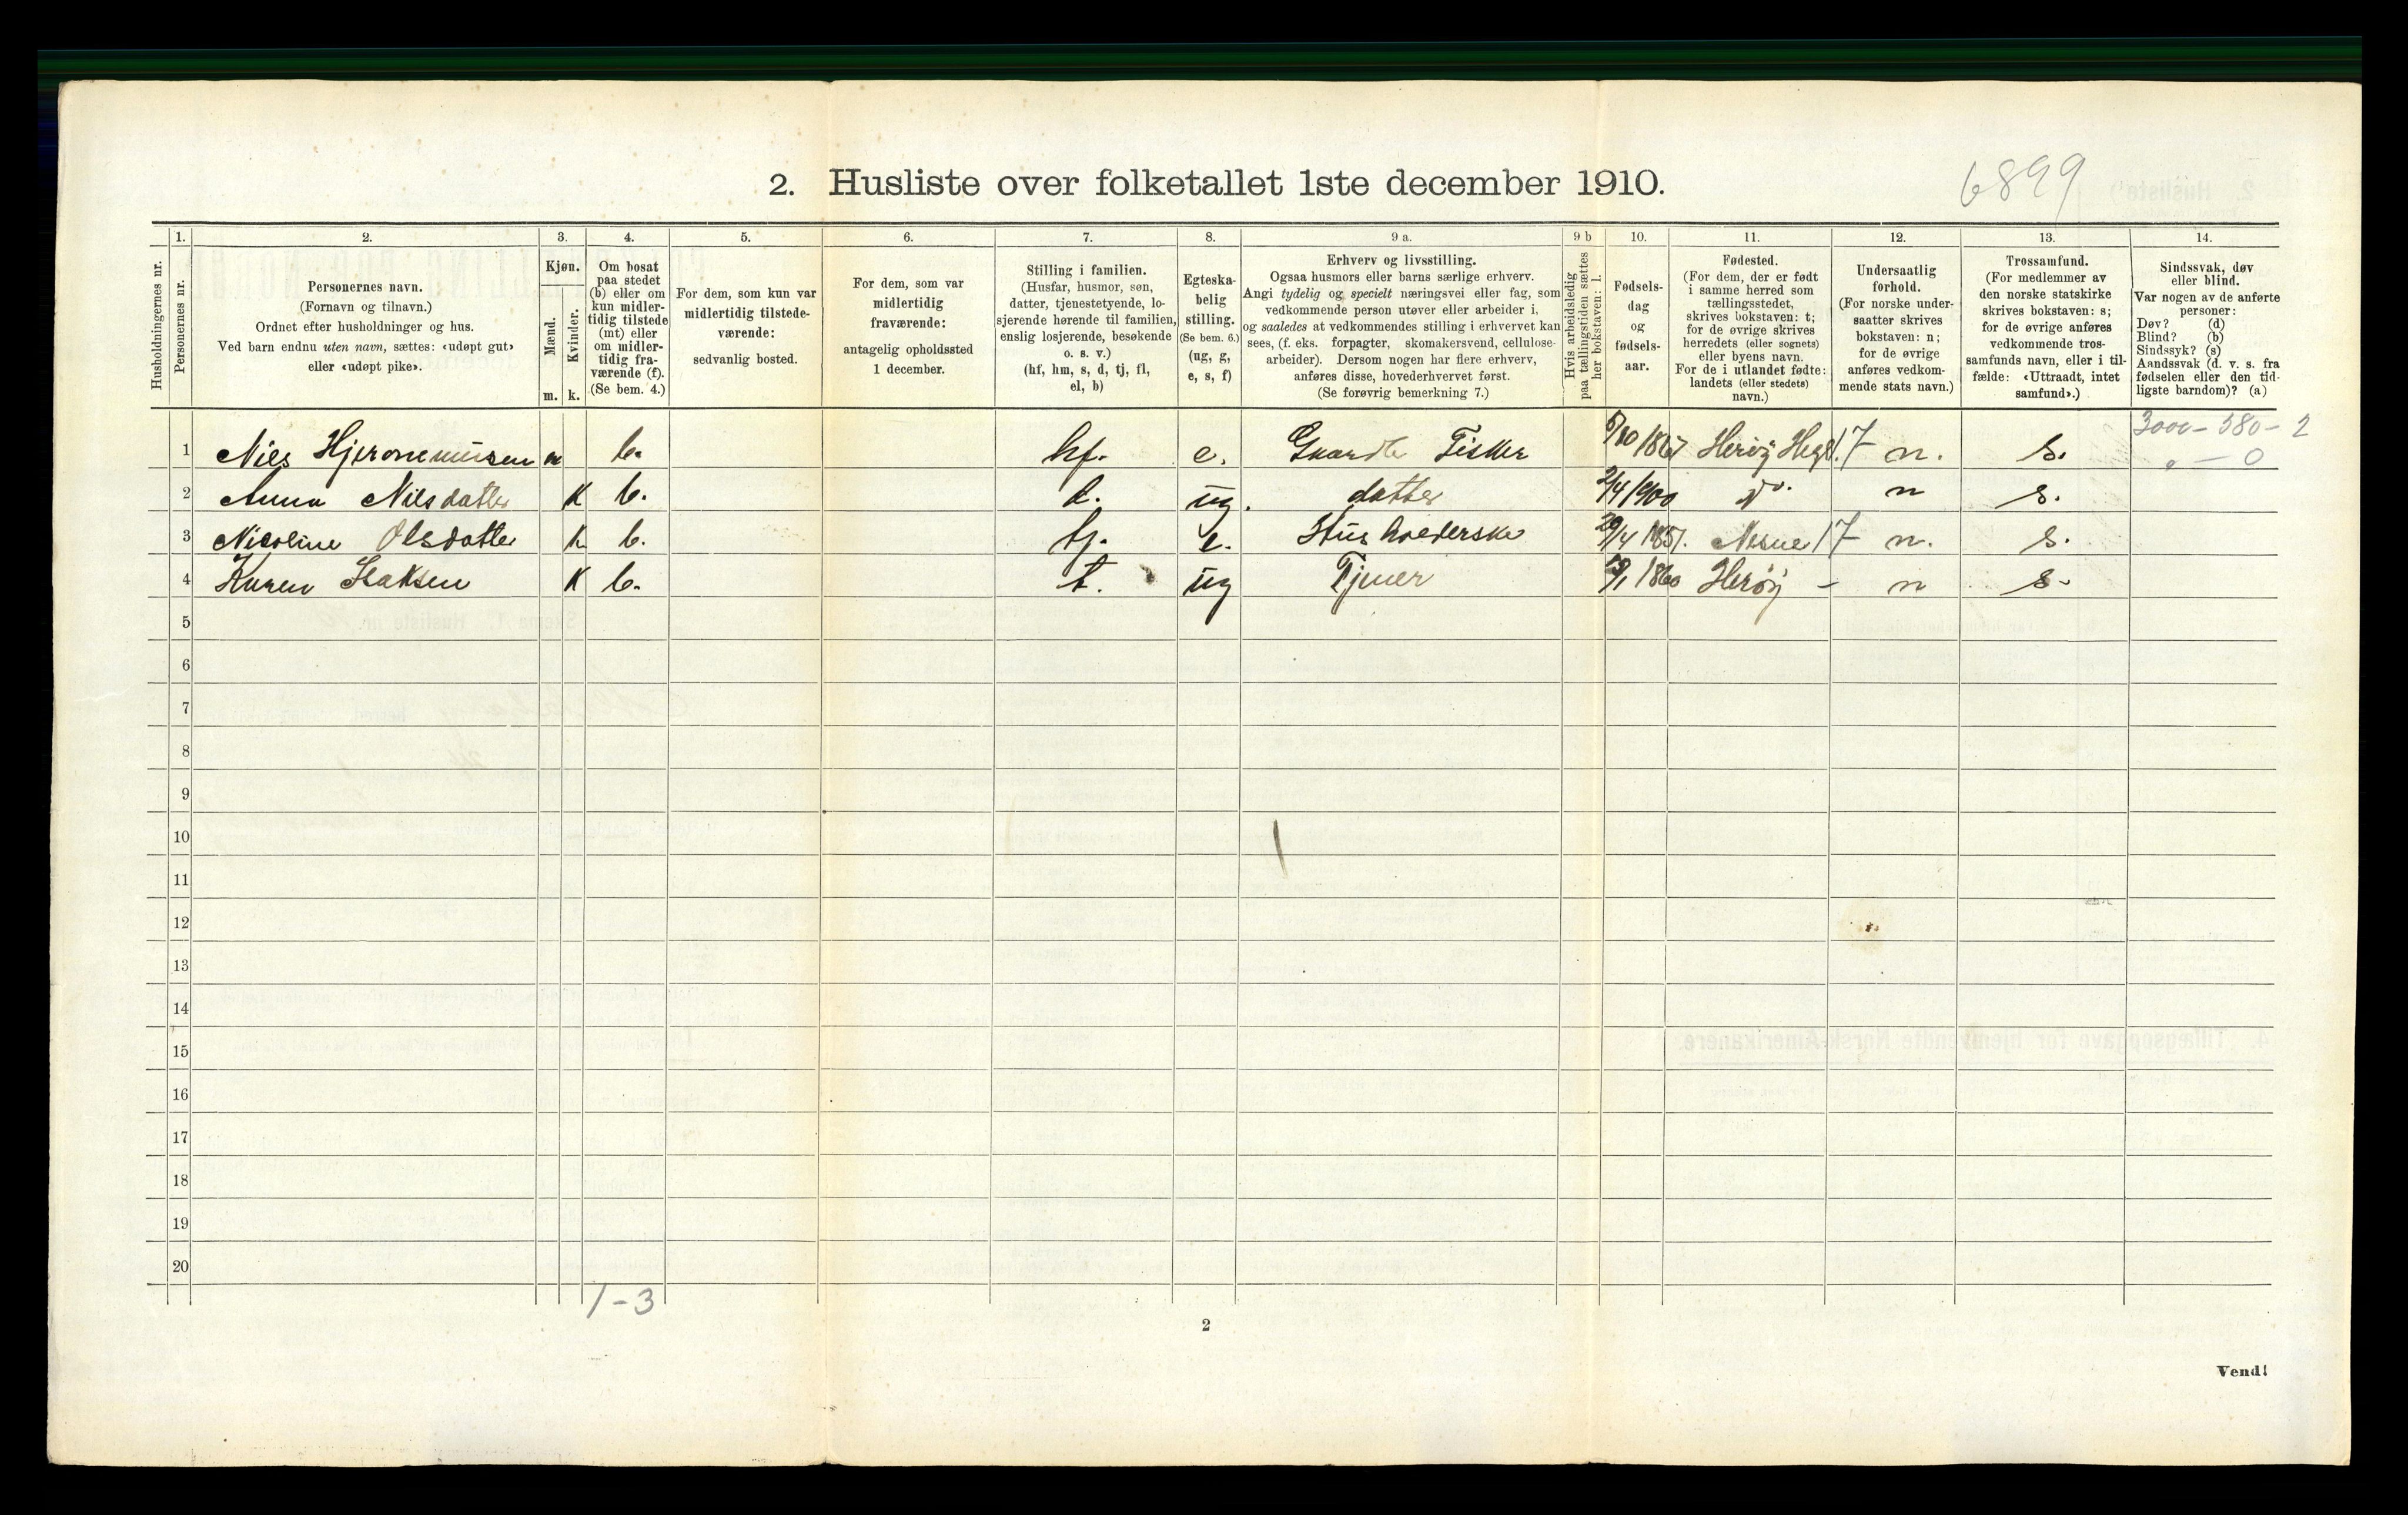 2. Husliste over folketallet 1ste december 1910.
6899
Husholdningernes nr.
1.
Personernes nr.
2.
Personernes navn.
(Fornavn og tilnavn.)
Ordnet efter husholdninger og hus.
Ved barn endnu uten navn, sættes: «udøpt gut»
eller «udøpt pike».
3.
Kjøn.
Mænd.
Kvinder.
m. k.
4.
Om bosat
paa stedet
(b) eller om
kun midler-
tidig tilstede
(mt) eller
om midler-
tidig fra-
værende (f).
(Se bem. 4.)
5.
For dem, som kun var
midlertidig tilstede-
værende:
sedvanlig bosted.
6.
For dem, som var
midlertidig
fraværende:
antagelig opholdssted
1 december.
7.
Stilling i familien.
(Husfar, husmor, søn,
datter, tjenestetyende, lo-
sjerende hørende til familien,
enslig losjerende, besøkende
o. s. v.)
(hf, hm, s, d, tj, fl,
el, b)
8.
Egteska-
belig
stilling.
(Se bem. 6.)
(ug, g,
e, s, f)
9 a.
Erhverv og livsstilling.
Ogsaa husmors eller barns særlige erhverv.
Angi tydelig og specielt næringsvei eller fag, som
vedkommende person utøver eller arbeider i,
og saaledes at vedkommendes stilling i erhvervet kan
sees, (f. eks. forpagter, skomakersvend, cellulose-
arbeider). Dersom nogen har flere erhverv,
anføres disse, hovederhvervet først.
(Se forøvrig bemerkning 7.)
9 b
Hvis arbeidsledig
paa tællingstiden sættes
her bokstaven: l.
10.
Fødsels-
dag
og
fødsels-
aar.
11.
Fødested.
(For dem, der er født
i samme herred som
tællingsstedet,
skrives bokstaven: t;
for de øvrige skrives
herredets (eller sognets)
eller byens navn.
For de i utlandet fødte:
landets (eller stedets)
navn.)
12.
Undersaatlig
forhold.
(For norske under-
saatter skrives
bokstaven: n;
for de øvrige
anføres vedkom-
mende stats navn.)
13.
Trossamfund.
(For medlemmer av
den norske statskirke
skrives bokstaven: s;
for de øvrige anføres
vedkommende tros-
samfunds navn, eller i til-
fælde: «Uttraadt, intet
samfund».)
14.
Sindssvak, døv
eller blind.
Var nogen av de anførte
personer:
Døv? (d)
Blind? (b)
Sindssyk? (s)
Aandssvak (d. v. s. fra
fødselen eller den tid-
ligste barndom)? (a)
3000 - 580 - 2
" - 0
1 Nils Hjeronemussen m b. hf. e. Gaardb Fisker /10 1867 Herøy 17 n. s.
2 Anna Nilsdatter K b. d. ug. datter 2/4 1900 do. n s.
3 Nicoline Olsdatter K b. tj. e. Husholderske 29/4 1857. Nesne 17 n. s.
4 Karen Isaksen K b. t. ug Tjener /1 1860 Herøy - n s.
5
6
7
8
9
10
11
12
13
14
15
16
17
18
19
20
1 - 3
2
Vend!